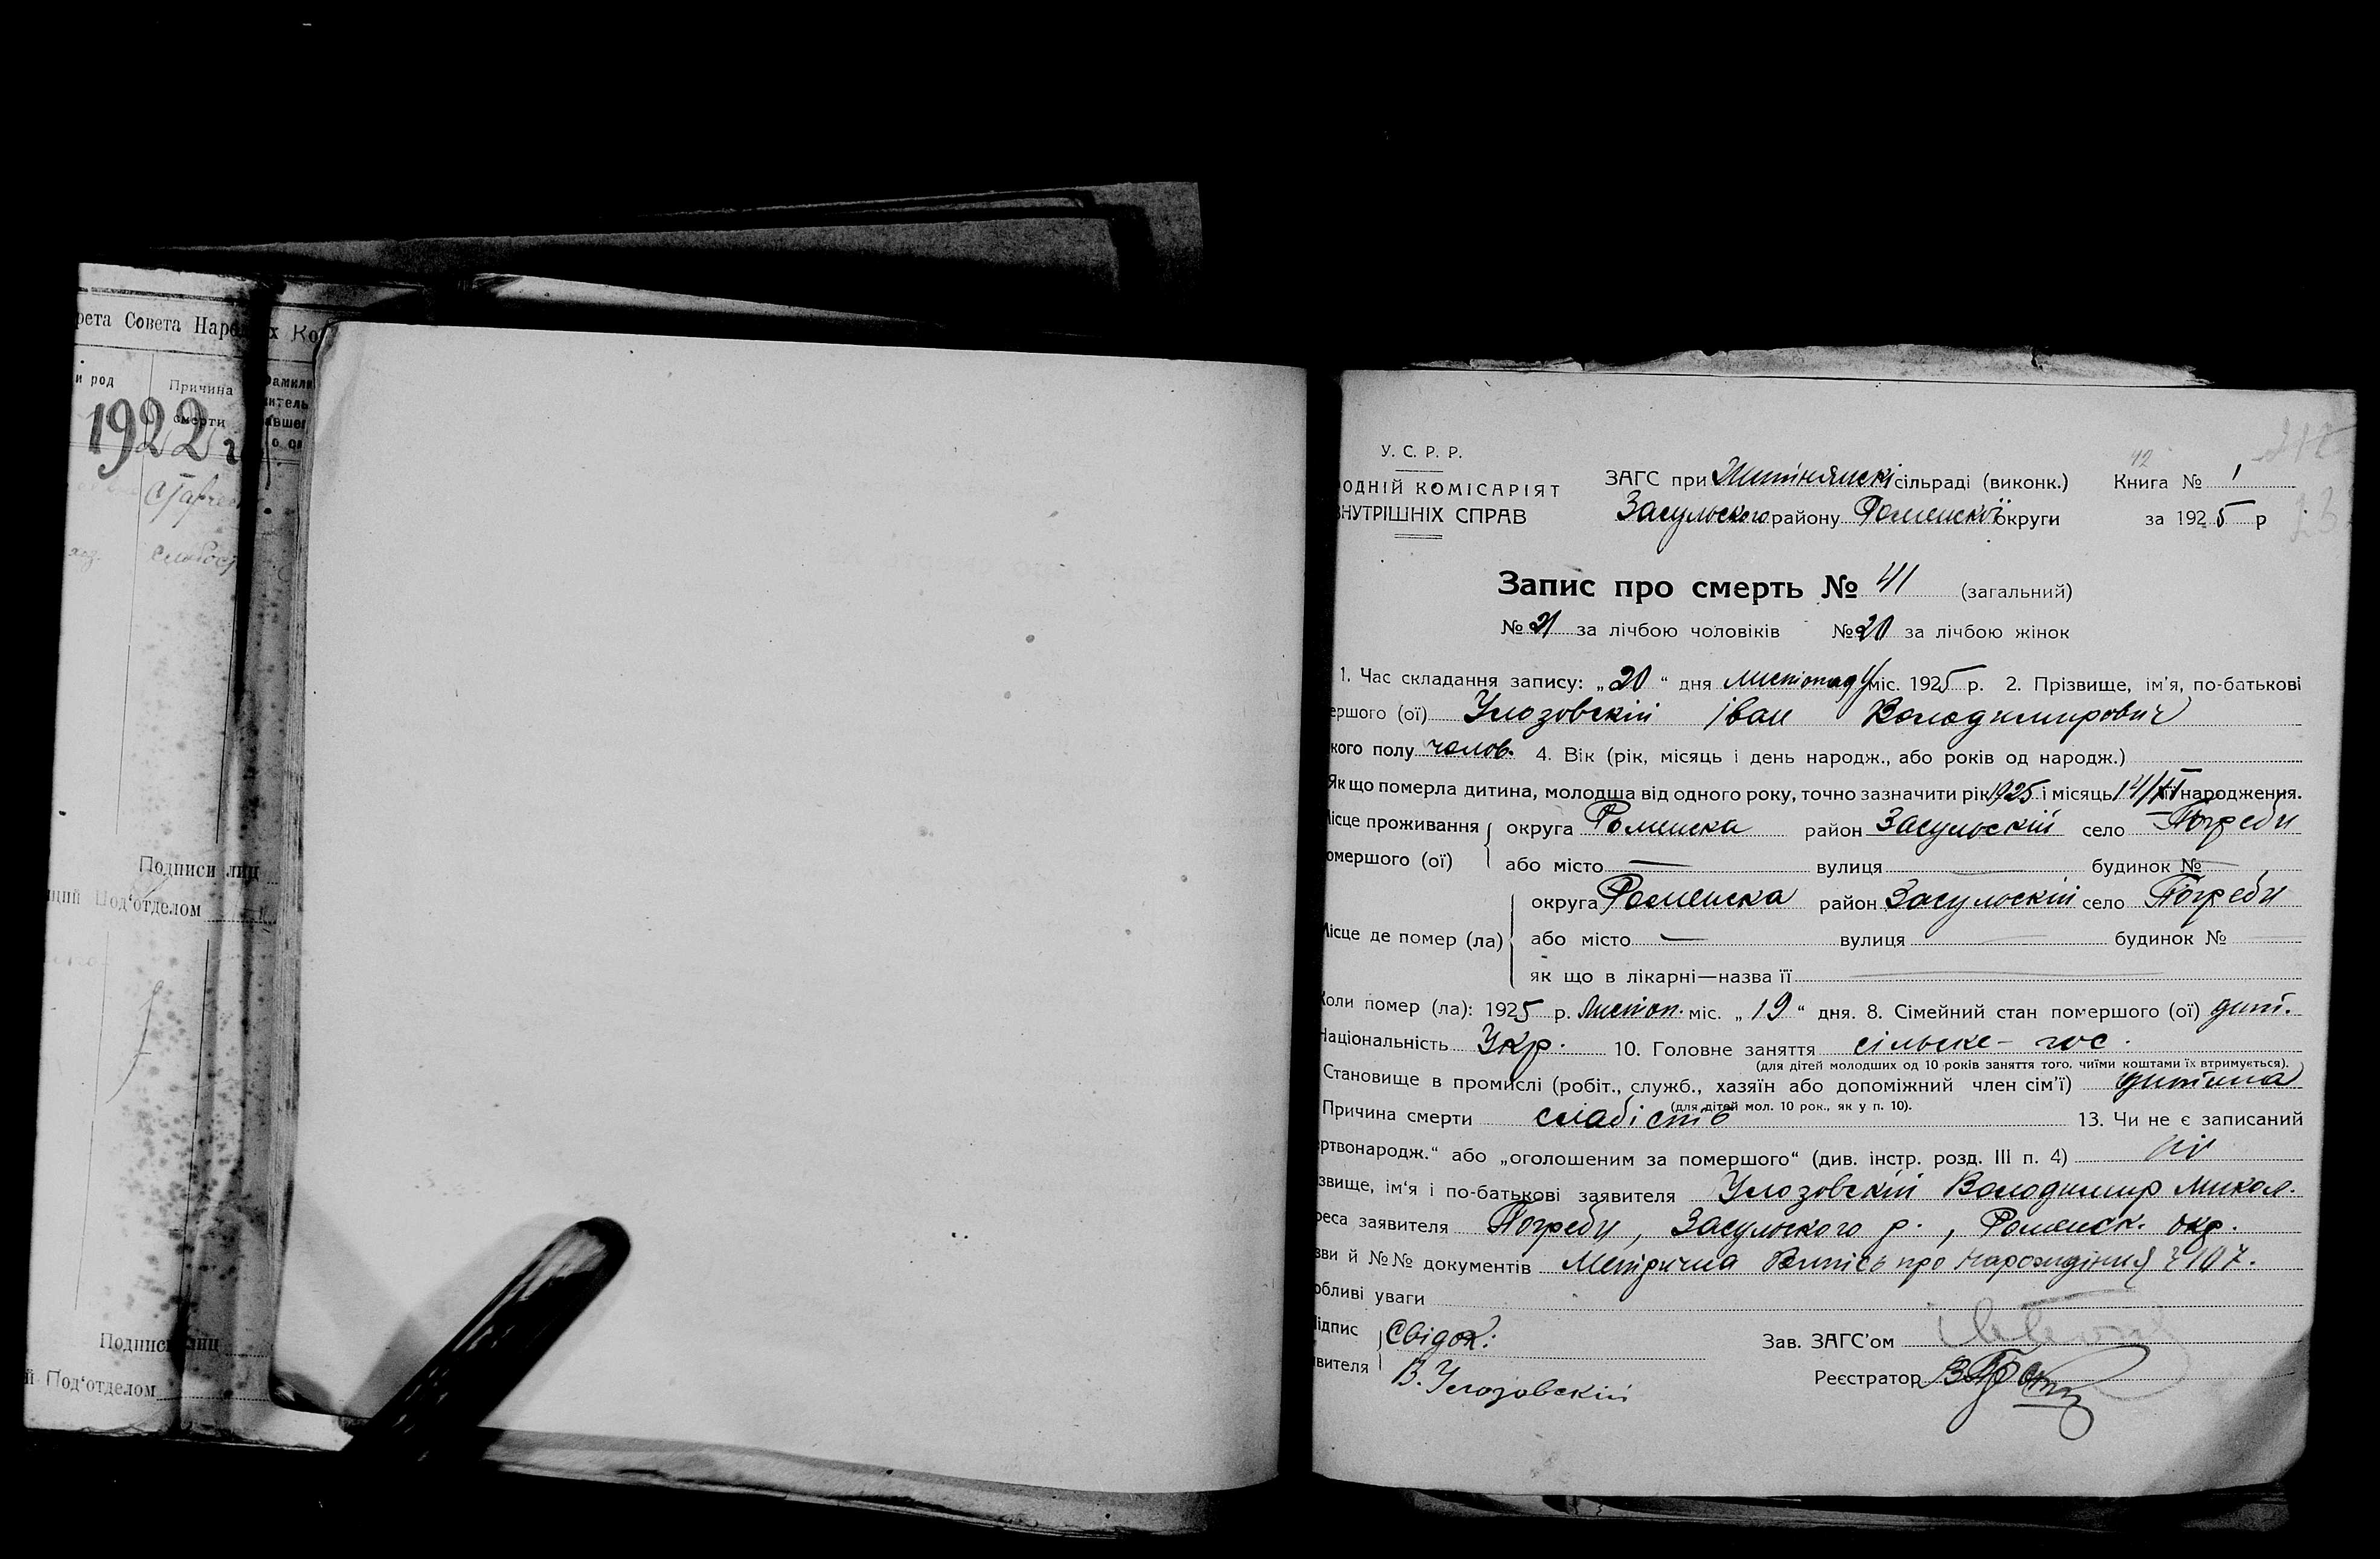 рета Совета Наро х Ко
и род Причина смерти
1922 г
Подписи лиц
щий Под‘отделом
Подписи лиц
й Под‘отделом
У. С. Р. Р.
ОДНІЙ КОМІСАРІЯТ
ВНУТРІШНІХ СПРАВ
ЗАГС при сільраді (виконк.) Книга № 1
Засульского району Роменскої округи за 1925 р
Запис про смерть № 41 (загальний)
№ 21 за лічбою чоловіків № 20 за лічбою жінок
1. Час складання запису: „20“ дня листопаду міс. 1925 р. 2. Прізвище, ім’я, по-батькові
ершого (ої) Улозовскій Іван Володимирович
кого полу чолов. 4. Вік (рік, місяць і день народж., або років од народж.)
Якщо померла дитина, молодша від одного року, точно зазначити рік 1925 і місяць 14/XI народження.
Місце проживання округа Роменска район Засульскій село Погреби
омершого (ої) або місто — вулиця — будинок № —
округа Роменска район Засульскій село Погреби
Місце де помер (ла) або місто — вулиця — будинок № —
як що в лікарні—назва її —
Коли помер (ла): 1925 р. Листоп. міс. „19“ дня. 8. Сімейний стан помершого (ої) дит.
Національність Укр. 10. Головне заняття сільске-гос.
(для дітей молодших од 10 років заняття того, чиїми коштами їх втримується).
Становище в промислі (робіт., служб., хазяїн або допоміжний член сім’ї) дитина
(для дітей мол. 10 рок., як у п. 10).
Причина смерти слабість 13. Чи не є записаний
ртвонародж.“ або „оголошеним за помершого“ (див. інстр. розд. III п. 4) ні
звище, ім‘я і по-батькові заявителя Улозовскій Володимир Микол.
реса заявителя Погреби, Засульского р., Роменск. окр.
зви й №№ документів Метрична Випись про народжіння ч 107.
обливі уваги
ідпис Свідок:
явителя В. Улозовскій
Зав. ЗАГС’ом
Реєстратор